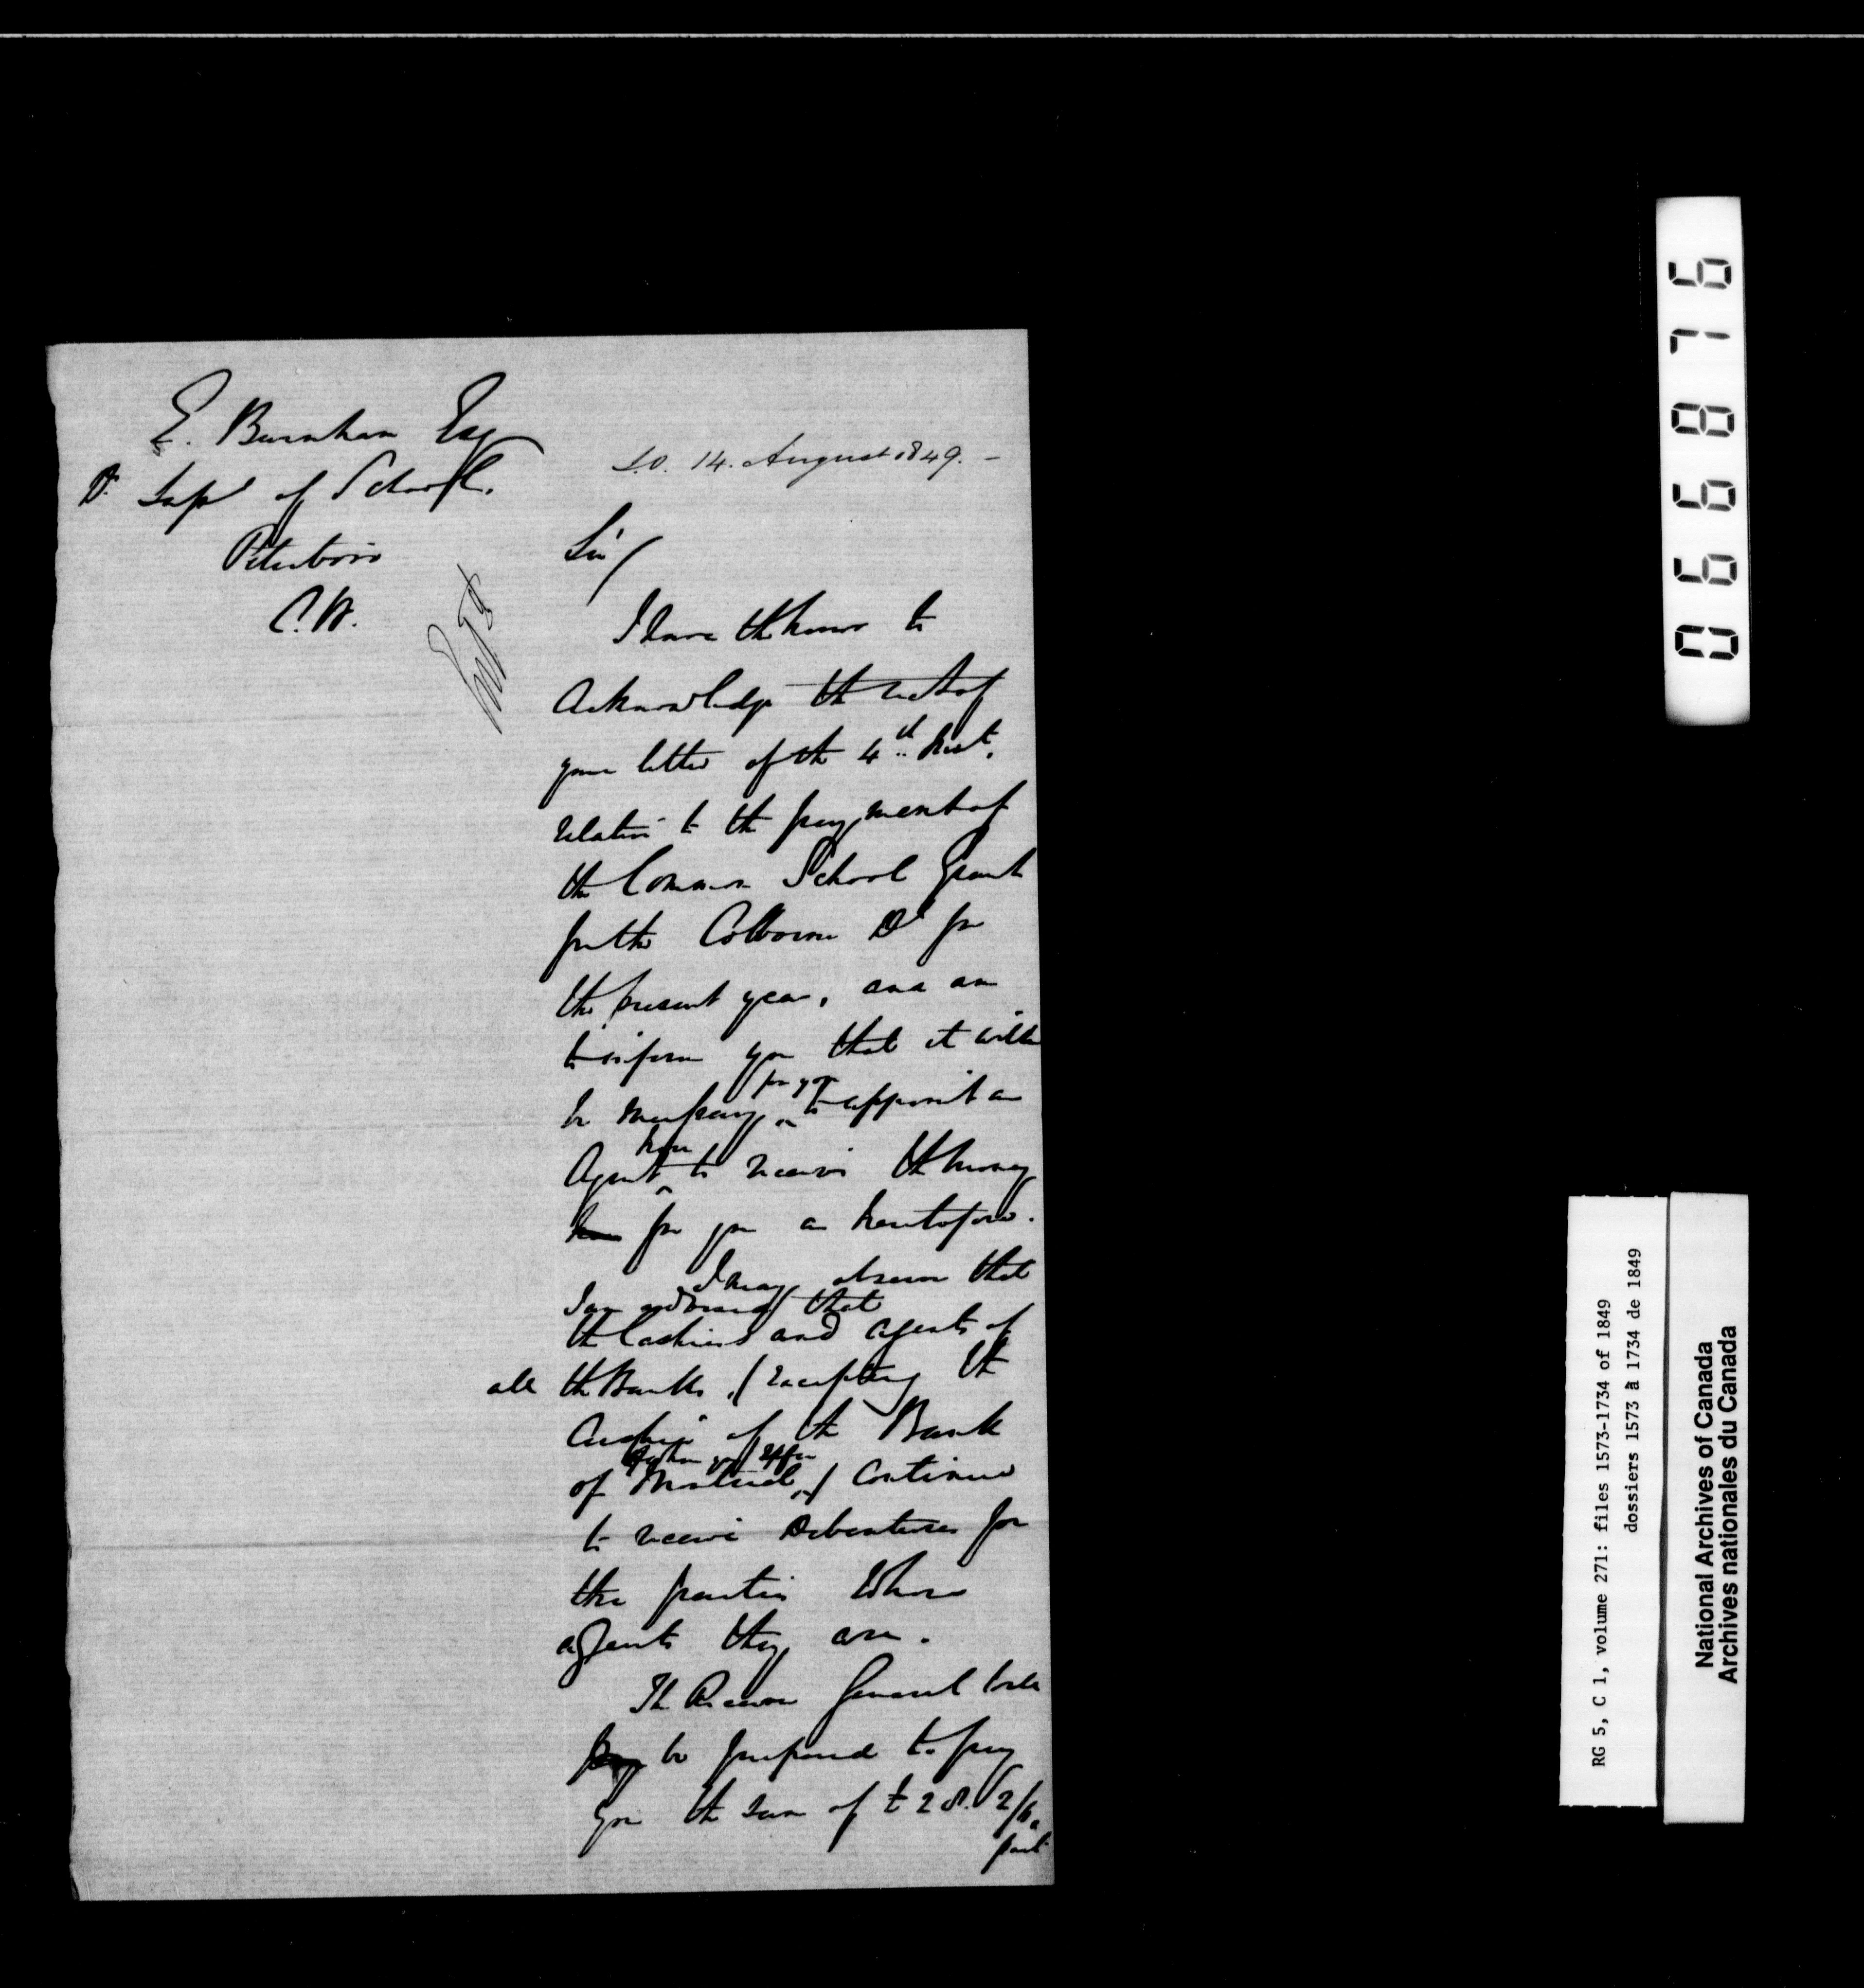 E. Burnham Esq
D. Supt of Schools.
Peterboro
C.W.
S.O. 14. August 1849. -
Sir/
I have the honor to
Acknowledge the rect of
your letter of the 4th Inst.
relative to the payment of
the Common School Grant
for the Colborne Dt for
the present year, and am
to inform you that it will
for you
be necessary to appoint an
here
Agent to receive the money
for you as heretofore.
I may observe that
that
the Cashiers and agents of
all the Banks, (excepting the
Cashier of the Bank
of Montreal,) continue
to receive Debentures for
the parties whose
agents they are.
The Receiver General will
be prepared to pay
you the sum of £28. 2/6,
part
066876
RG 5, C 1, volume 271: files 1573-1734 of 1849
dossiers 1573 à 1734 de 1849
National Archives of Canada
Archives nationales du Canada